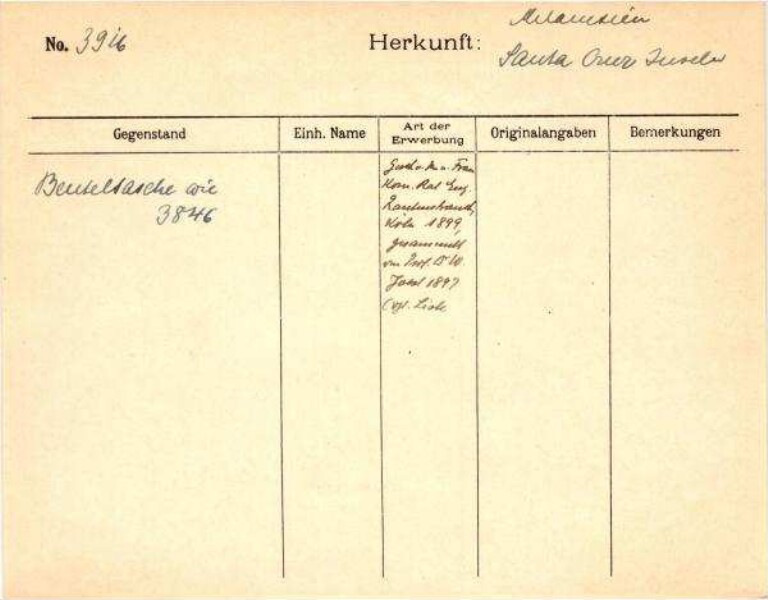 Melanesien
No. 3916 Herkunft: Santa Cruz Inseln
Gegenstand Einh. Name Art der Erwerbung Originalangaben Bemerkungen
Beuteltasche wie
3846
Gesch. v. Frau
Kom. Rat Eug.
Rautenstrauch,
Köln 1899,
gesammelt
von Prof. Dr W.
Joest 1897
(vgl. Liste